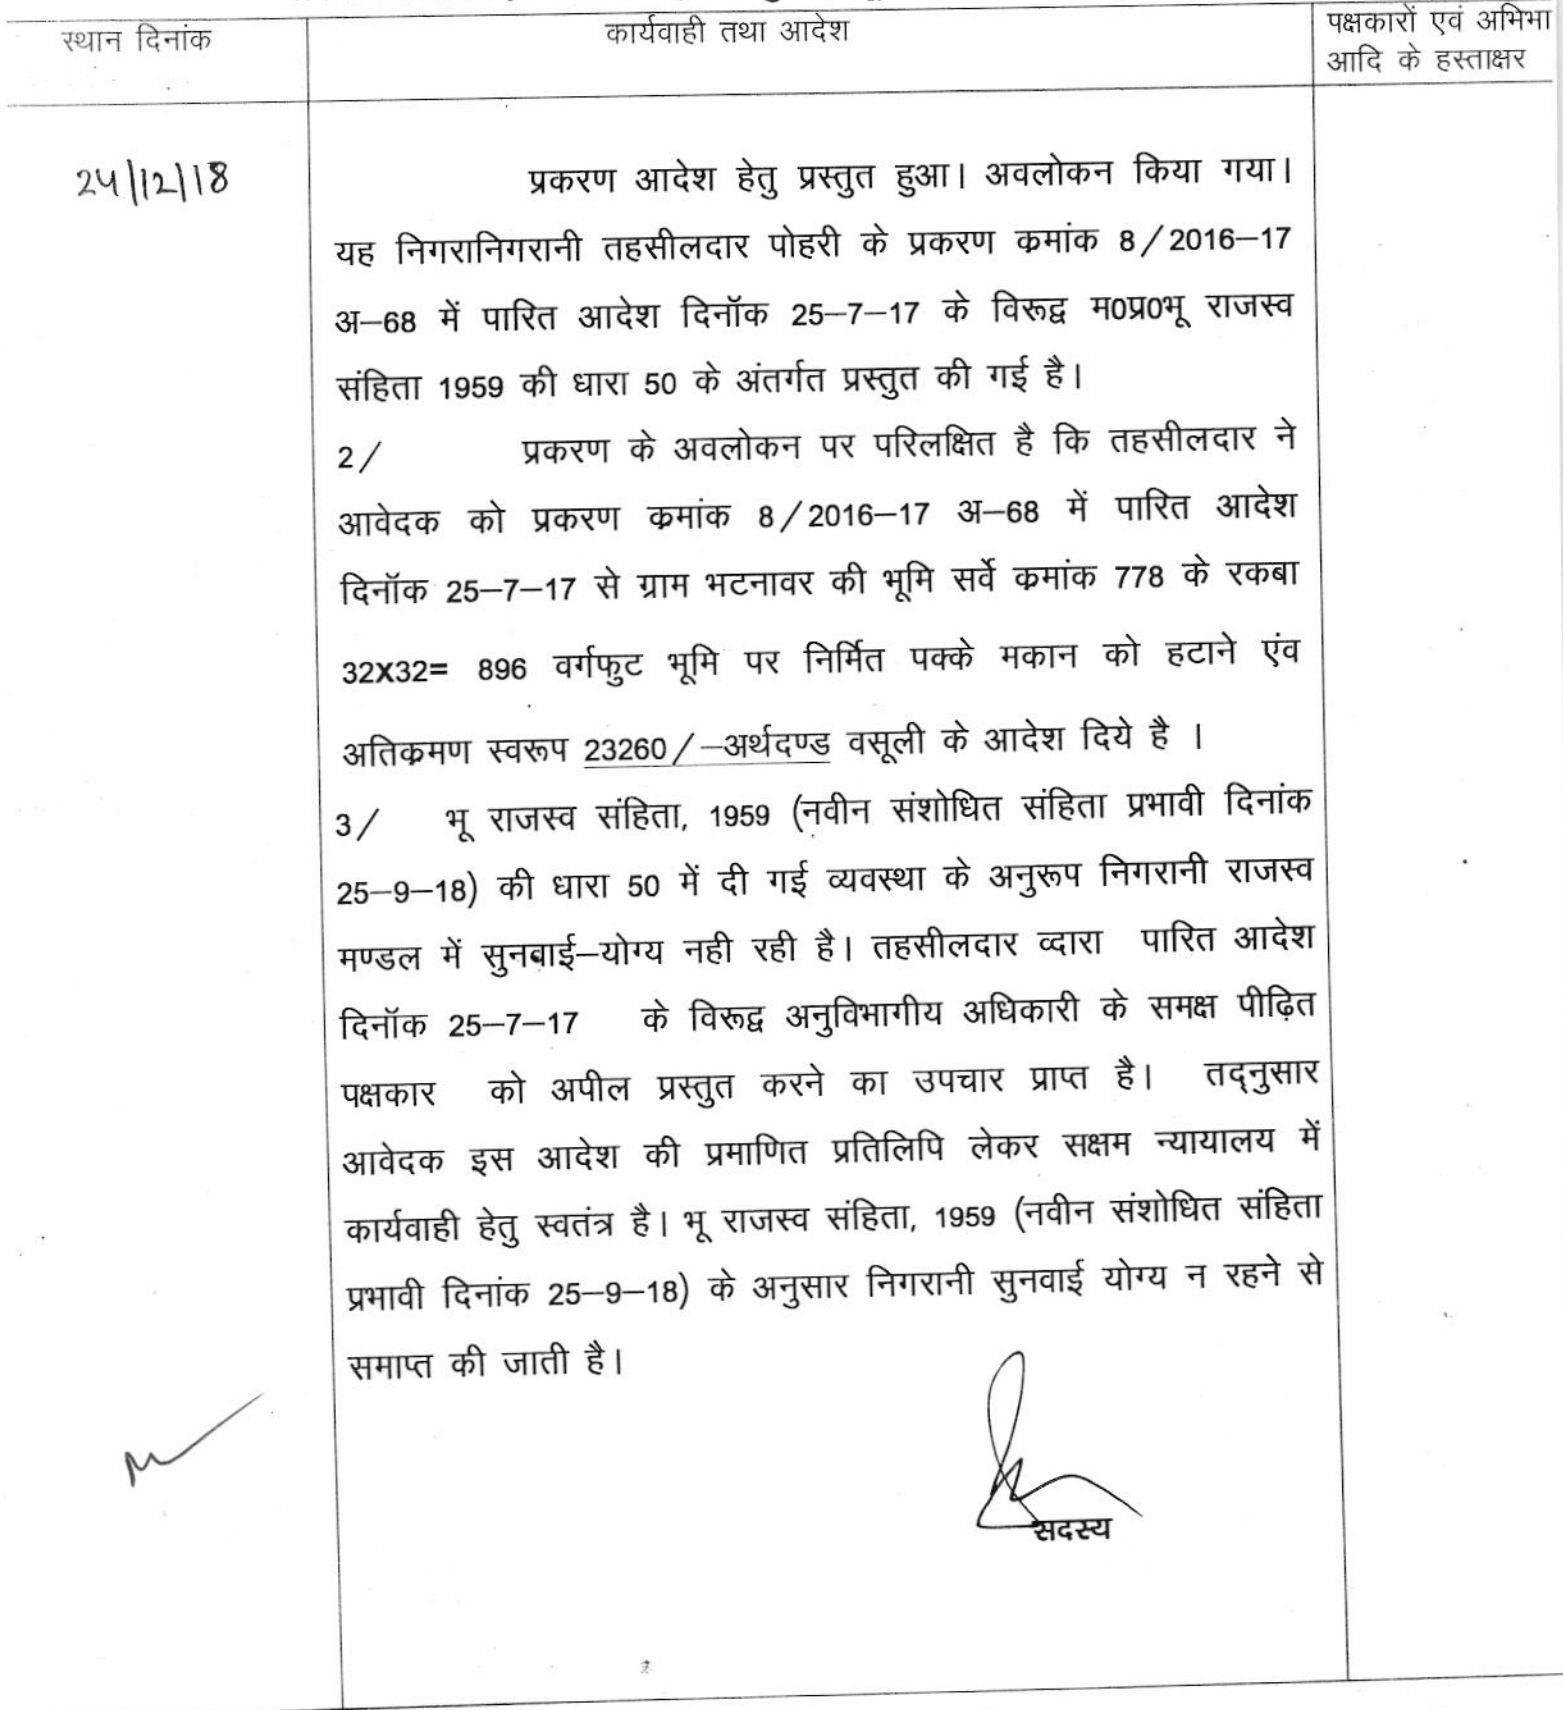 स्थान दिनांक
कार्यवाही तथा आदेश
पक्षकारों एवं अभिभा
आदि के हस्ताक्षर
24/12/18
प्रकरण आदेश हेतु प्रस्तुत हुआ। अवलोकन किया गया।
यह निगरानिगरानी तहसीलदार पोहरी के प्रकरण कमांक 8/2016–17
अ–68 में पारित आदेश दिनॉक 25–7–17 के विरूद्व म0प्र0भू राजस्व
संहिता 1959 की धारा 50 के अंतर्गत प्रस्तुत की गई है।
2/ प्रकरण के अवलोकन पर परिलक्षित है कि तहसीलदार ने
आवेदक को प्रकरण कमांक 8/2016–17 अ–68 में पारित आदेश
दिनॉक 25–7–17 से ग्राम भटनावर की भूमि सर्वे कमांक 778 के रकबा
32X32= 896 वर्गफुट भूमि पर निर्मित पक्के मकान को हटाने एंव
अतिकमण स्वरूप 23260/–अर्थदण्ड वसूली के आदेश दिये है ।
3/ भू राजस्व संहिता, 1959 (नवीन संशोधित संहिता प्रभावी दिनांक
25–9–18) की धारा 50 में दी गई व्यवस्था के अनुरूप निगरानी राजस्व
मण्डल में सुनवाई–योग्य नही रही है। तहसीलदार व्दारा पारित आदेश
दिनॉक 25–7–17 के विरूद्व अनुविभागीय अधिकारी के समक्ष पीढ़ित
पक्षकार को अपील प्रस्तुत करने का उपचार प्राप्त है। तद्नुसार
आवेदक इस आदेश की प्रमाणित प्रतिलिपि लेकर सक्षम न्यायालय में
कार्यवाही हेतु स्वतंत्र है। भू राजस्व संहिता, 1959 (नवीन संशोधित संहिता
प्रभावी दिनांक 25–9–18) के अनुसार निगरानी सुनवाई योग्य न रहने से
समाप्त की जाती है।
सदस्य